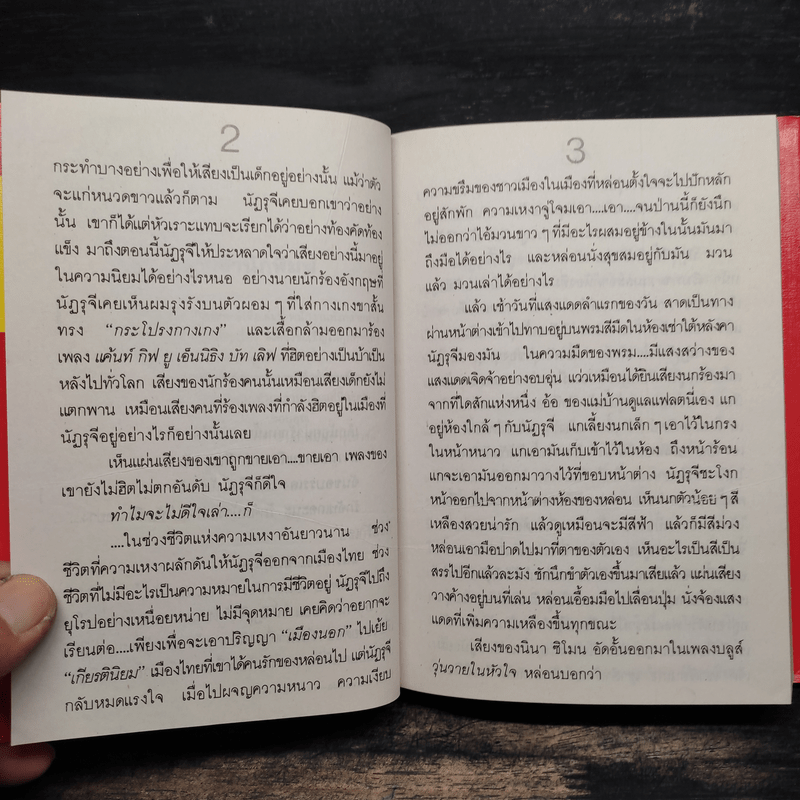 2
กระทำบางอย่างเพื่อให้เสียงเป็นเด็กอยู่อย่างนั้น แม้ว่าตัว
จะแก่หนวดขาวแล้วก็ตาม นัฏรุจีเคยบอกเขาว่าอย่าง
นั้น เขาก็ได้แต่หัวเราะแทบจะเรียกได้ว่าอย่างท้องคัดท้อง
แข็ง มาถึงตอนนี้นัฏรุจีให้ประหลาดใจว่าเสียงอย่างนี้มาอยู่
ในความนิยมได้อย่างไรหนอ อย่างนายนักร้องอังกฤษที่
นัฏรุจีเคยเห็นผมรุงรังบนตัวผอม ๆ ที่ใส่กางเกงขาสั้น
ทรง “กระโปรงกางเกง” และเสื้อกล้ามออกมาร้อง
เพลง แค้นท์ กิฟ ยู เอ็นนิธิง บัท เลิฟ ที่ฮิตอย่างเป็นบ้าเป็น
หลังไปทั่วโลก เสียงของนักร้องคนนั้นเหมือนเสียงเด็กยังไม่
แตกพาน เหมือนเสียงคนที่ร้องเพลงที่กำลังฮิตอยู่ในเมืองที่
นัฏรุจีอยู่อย่างไรก็อย่างนั้นเลย
เห็นแผ่นเสียงของเขาถูกขายเอา....ขายเอา เพลงของ
เขายังไม่ฮิตไม่ตกอันดับ นัฏรุจีก็ดีใจ
ทำไมจะไม่ดีใจเล่า....ก็
....ในช่วงชีวิตแห่งความเหงาอันยาวนาน ช่วง
ชีวิตที่ความเหงาผลักดันให้นัฏรุจีออกจากเมืองไทย ช่วง
ชีวิตที่ไม่มีอะไรเป็นความหมายในการมีชีวิตอยู่ นัฏรุจีไปถึง
ยุโรปอย่างเหนื่อยหน่าย ไม่มีจุดหมาย เคยคิดว่าอยากจะ
เรียนต่อ....เพียงเพื่อจะเอาปริญญา “เมืองนอก” ไปเย้ย
“เกียรตินิยม” เมืองไทยที่เขาได้คนรักของหล่อนไป แต่นัฏรุจี
กลับหมดแรงใจ เมื่อไปผจญความหนาว ความเงียบ
3
ความขรึมของชาวเมืองในเมืองที่หล่อนตั้งใจจะไปปักหลัก
อยู่สักพัก ความเหงาจู่โจมเอา....เอา....จนป่านนี้ก็ยังนึก
ไม่ออกว่าไอ้มวนขาว ๆ ที่มีอะไรผสมอยู่ข้างในนั้นมันมา
ถึงมือได้อย่างไร และหล่อนนั่งสุขสมอยู่กับมัน มวน
แล้ว มวนเล่าได้อย่างไร
แล้ว เช้าวันที่แสงแดดลำแรกของวัน สาดเป็นทาง
ผ่านหน้าต่างเข้าไปทาบอยู่บนพรมสีมืดในห้องเช่าใต้หลังคา
นัฏรุจีมองมัน ในความมืดของพรม....มีแสงสว่างของ
แสงแดดเจิดจ้าอย่างอบอุ่น แว่วเหมือนได้ยินเสียงนกร้องมา
จากที่ใดสักแห่งหนึ่ง อ้อ ของแม่บ้านดูแลแฟลตนี่เอง แก
อยู่ห้องใกล้ ๆ กับนัฏรุจี แกเลี้ยงนกเล็ก ๆ เอาไว้ในกรง
ในหน้าหนาว แกเอามันเก็บเข้าไว้ในห้อง ถึงหน้าร้อน
แกจะเอามันออกมาวางไว้ที่ขอบหน้าต่าง นัฏรุจีชะโงก
หน้าออกไปจากหน้าต่างห้องของหล่อน เห็นนกตัวน้อย ๆ สี
เหลืองสวยน่ารัก แล้วดูเหมือนจะมีสีฟ้า แล้วก็มีสีม่วง
หล่อนเอามือปาดไปมาที่ตาของตัวเอง เห็นอะไรเป็นสีเป็น
สรรไปอีกแล้วละมัง ชักนึกขำตัวเองขึ้นมาเสียแล้ว แผ่นเสียง
วางค้างอยู่บนที่เล่น หล่อนเอื้อมมือไปเลื่อนปุ่ม นั่งจ้องแสง
แดดที่เพิ่มความเหลืองขึ้นทุกขณะ
เสียงของนินา ซิโมน อัดอั้นออกมาในเพลงบลูส์
วุ่นวายในหัวใจ หล่อนบอกว่า